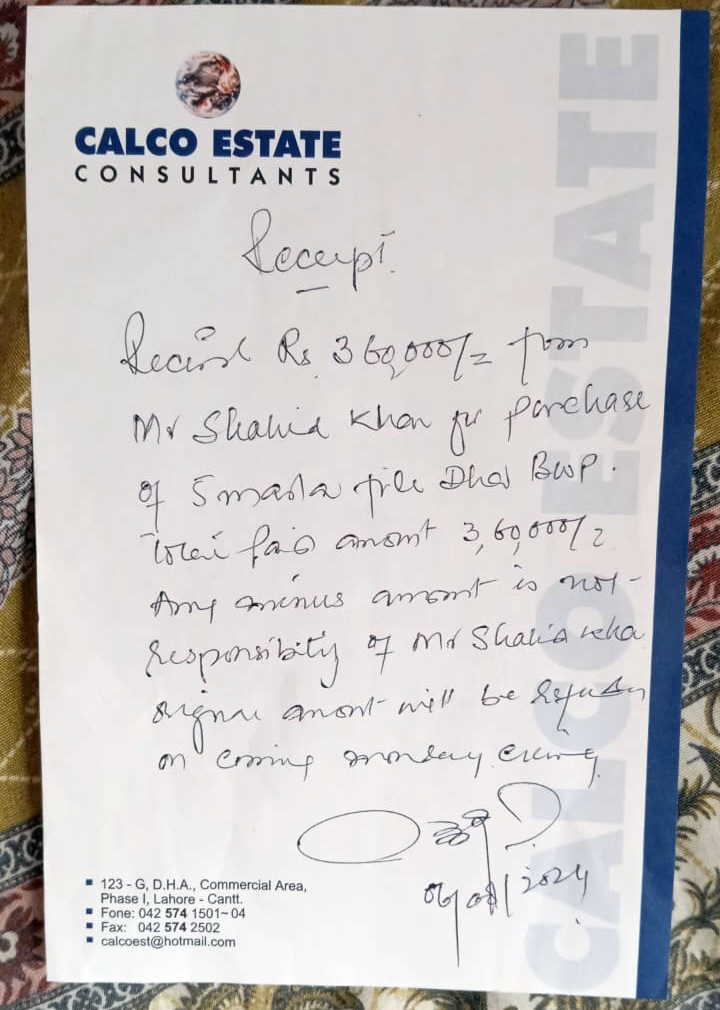 CALCO ESTATE
CONSULTANTS
Receipt.
Rs. 360,000/= from
Mr Shahid Khan for purchase
of 5 marla file Dha BWP.
Total paid amont 3,60,000/=
Any minus amont is not-
responsibity of Mr Shahid
amont will be
on coming monday evening
2024
123 - G, D.H.A., Commercial Area,
Phase I, Lahore - Cantt.
Fone: 042 574 1501~04
Fax: 042 574 2502
calcoest@hotmail.com
CALCO ESTATE